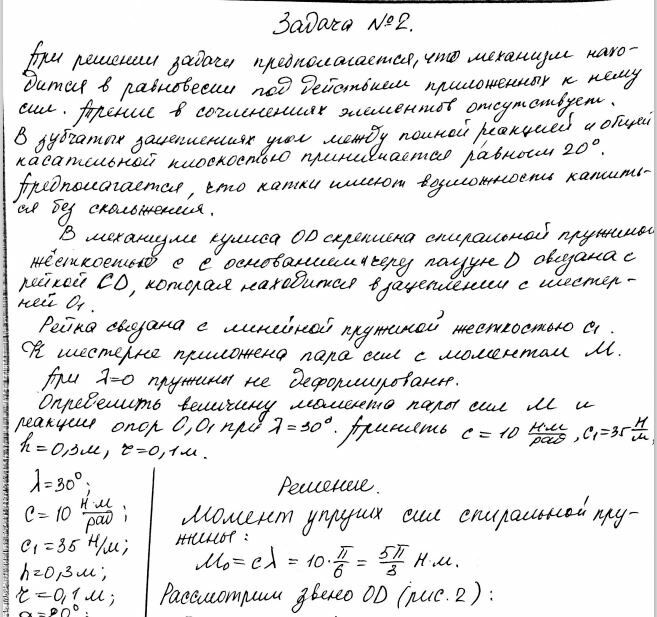 Задача №2.
При решении задачи предполагается, что механизм нахо-
дится в равновесии под действием приложенных к нему
сил. Трение в сочленениях элементов отсутствует.
В зубчатых зацеплениях угол между полной реакцией и общей
касательной плоскостью принимается равным 20°.
Предполагается, что катки имеют возможность катить-
ся без скольжения.
В механизме кулиса OD скреплена спиральной пружиной
жёсткостью c с основанием и через ползун D связана с
рейкой CD, которая находится в зацеплении с шестер-
ней O₁.
Рейка связана с линейной пружиной жесткостью c₁.
К шестерне приложена пара сил с моментом M.
При λ=0 пружины не деформированы.
Определить величину момента пары сил M и
реакции опор O, O₁ при λ=30°. Принять c = 10 Н·м/рад, c₁=35 Н/м,
h=0,3м, r=0,1м.
λ=30°;
c=10 Н·м/рад;
c₁=35 Н/м;
h=0,3м;
r=0,1м;
Решение.
Момент упругих сил спиральной пру-
жины:
M₀ = cλ = 10·π/6 = 5π/3 Н·м.
Рассмотрим звено OD (рис. 2):